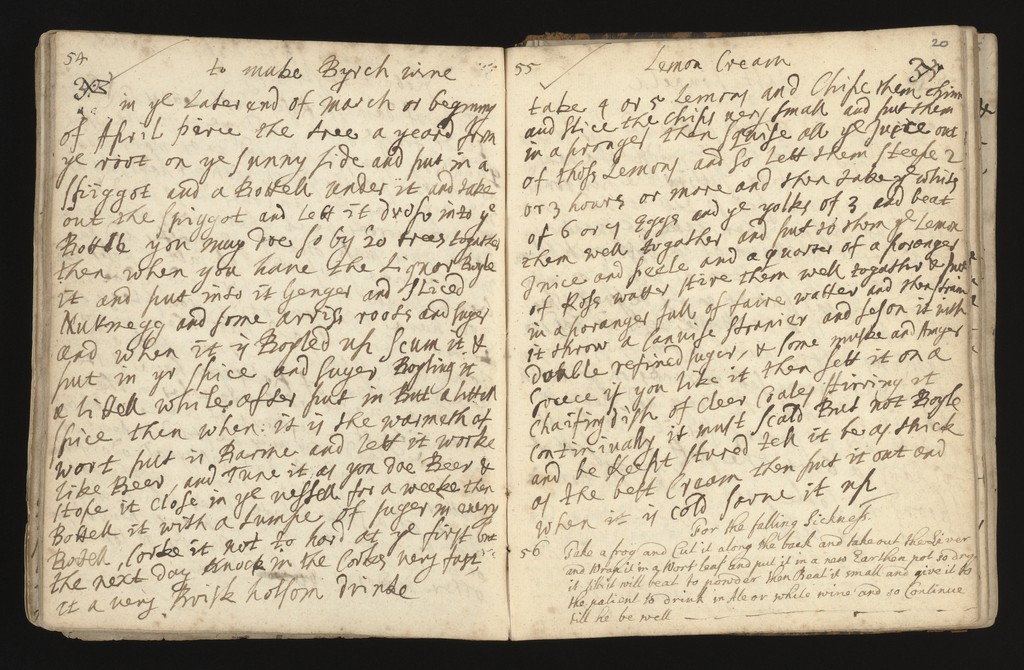 54
to make Byrch wine
in ye Later end of march or begining
of April pierce the tree a yeard from
ye root on ye sunny side and put in a
spiggot and a Bottell under it and take
out the spiggot and Lett it drop into ye
Bottle you may doe so by 20 trees togather
then when you have the Liquor Boyle
it and put into it Genger and Sliced
Nutmegg and some arriss roots and suger
and when it is Boyled up scum it &
put in yr spice and suger Boyling it
a littell while after put in But a littell
spice then when it is the warmeth of
wort put in Barme and lett it worke
like Beer, and Tune it as you doe Beer &
stope it close in ye vessell for a weeke then
Bottell it with a Lumpe of suger in every
Bottell, Corke it not to hard at ye first but
the next day knock in the Corkes very fast
it a very Brisk holsom Drinke
20
55
Lemon Cream
take 4 or 5 Lemons and Chipe them thinn
and slice the Chips very small and put them
in a poranger then squise all ye Juice out
of thoss Lemons and so Lett them steepe 2
or 3 hours or more and then take ye whits
of 6 or 7 Eggs and ye yolks of 3 and beat
them well togather and put to them ye Lemon
Juice and peele and a quarter of a poranger
of Ross watter stire them well togather & put
in a poranger full of faire watter and then strain
it throw a canvise strainier and seson it with
Double refined suger, & some muske and Amger
Greece if you like it then sett it on a
Chaifing dish of Cleer Coales stirring it
continiwally it must scald But not Boyle
and be keept stured tell it be as thick
as the best Cream then put it out and
when it is cold serve it up
For the falling Sickness.
56 Take a frog and Cut it along the back and take out the Liver
and Wrap it in a Wort leaf and put it in a new Earthen pot to dry
it till it will beat to powder then Beat it small and give it to
the patient to drink in Ale or white wine and so Continue
till he be well